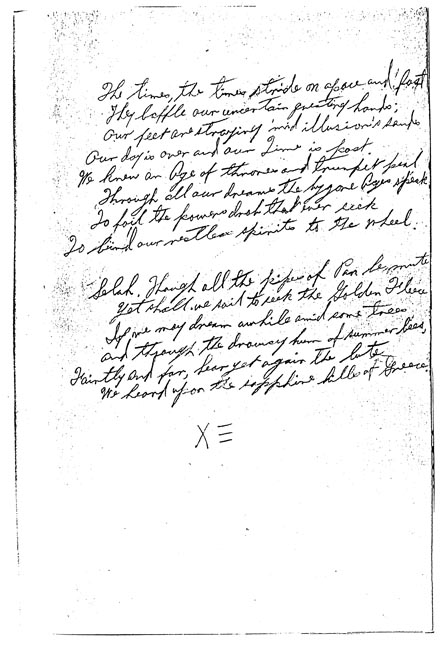 The times, the times stride on apace and fast
They baffle our uncertain greeting hands;
Our feet are straying 'mid illusion's sands
Our day is over and our Time is past
We knew an Age of thrones and trumpet peal
Through all our dreams the bygone Ages speak
To foil the powers drab that ever seek
To bind our restless spirits to the wheel.
Selah. Though all the pipes of Pan be mute
Yet shall we sail to seek the Golden Fleece
If we may dream awhile amid some trees
And through the drowsy hum of summer bees,
Faintly and far, hear yet again the lute
We heard upon the sapphire hills of Greece.
X Ξ